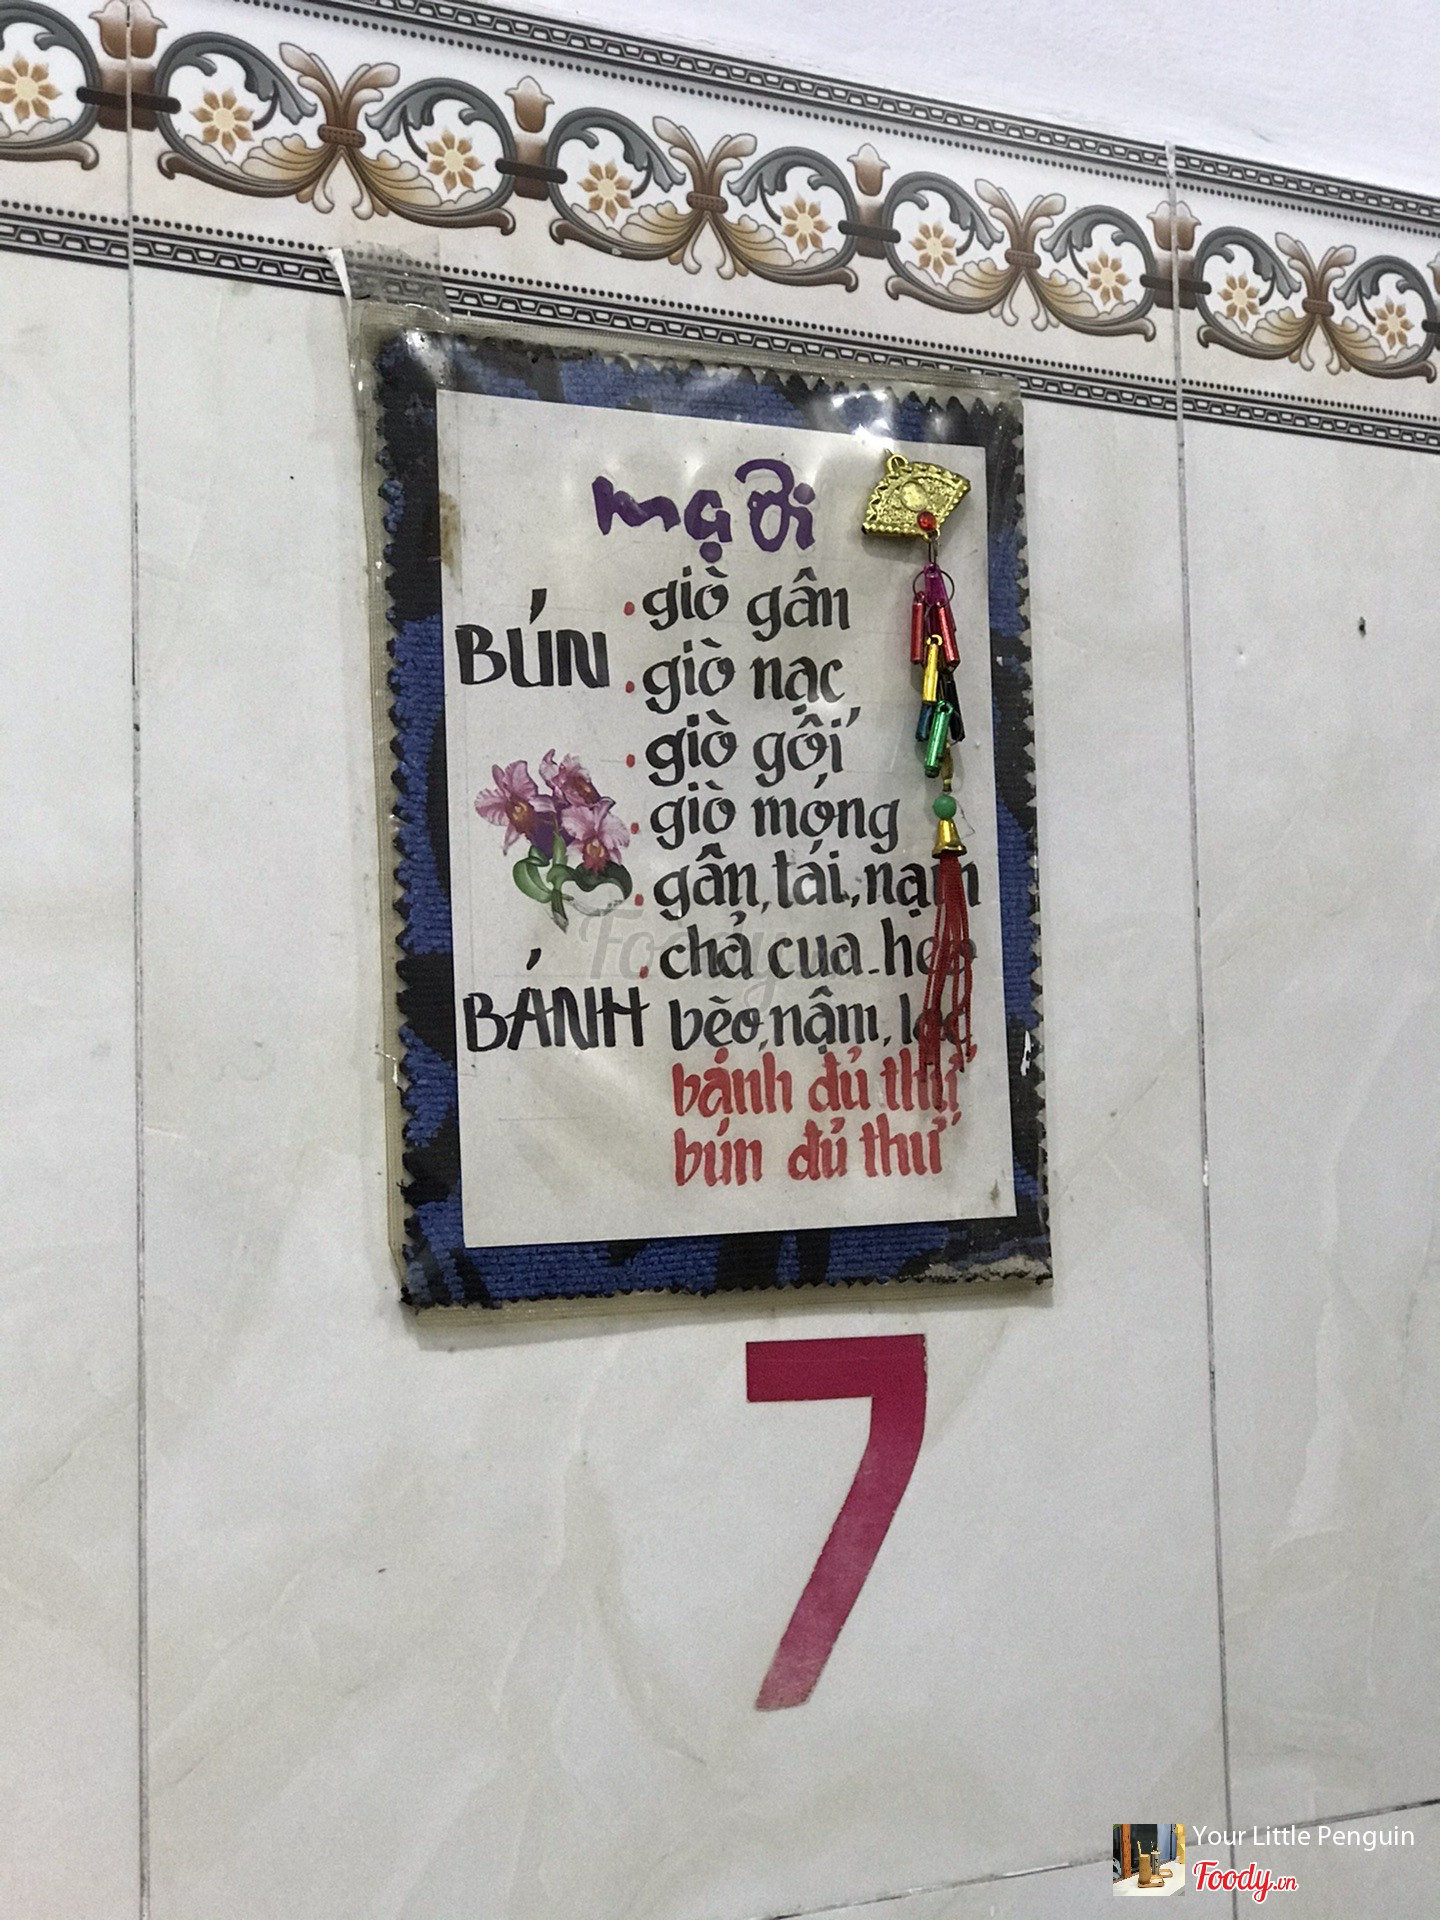 mạ ơi
BÚN
. giò gân
. giò nạc
. giò gối
. giò móng
. gân, tái, nạm
. chả cua - heo
BÁNH bèo, nậm, lọc
bánh đủ thứ
bún đủ thứ
Foody
7
Your Little Penguin
Foody.vn